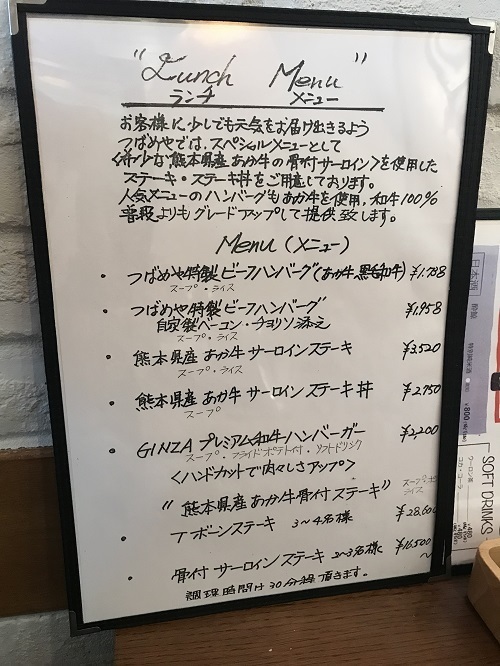 "Lunch Menu"
ランチ メニュー
お客様に少しでも元気をお届け出きるよう
つばめやでは、スペシャルメニューとして
<希少な熊本県産あか牛の骨付サーロイン>を使用した
ステーキ・ステーキ丼をご用意しております。
人気メニューのハンバーグもあか牛を使用、和牛100%
普段よりもグレードアップして提供致します。
Menu (メニュー)
・つばめや特製ビーフハンバーグ(あか牛黒毛和牛) ¥1.788
スープ・ライス
・つばめや特製ビーフハンバーグ ¥1.958
自家製ベーコン・チョリソ添え
スープ・ライス
・熊本県産あか牛サーロインステーキ ¥3.520
スープ・ライス
・熊本県産あか牛サーロインステーキ丼 ¥2.750
スープ
・GINZAプレミアム和牛ハンバーガー ¥2,200
スープ・フライドポテト付・ソフトドリンク
<ハンドカットで肉々しさアップ>
"熊本県産あか牛骨付ステーキ" スープ
ライス
・Tボーンステーキ 3〜4名様 ¥28.600
・骨付サーロインステーキ 2〜3名様 ¥16,500〜
調理時間は30分程頂きます。
日本酒
特別純米酒
¥800
ウーロン茶
コカ・コーラ
SOFT DRINKS